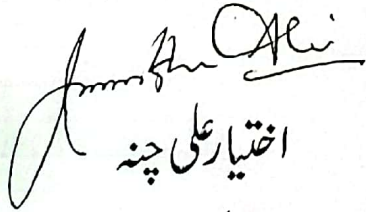 Ali
اختیار علی چنہ